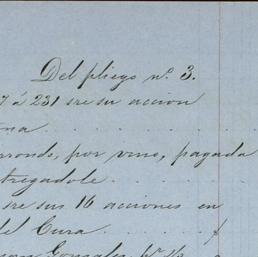 Del pliego nº 3.
7 á 231 sre su accion
na
rrondo, por vino, pagada
tregadole
sre sus 16 acciones en
del Cura
uan Gonzalez